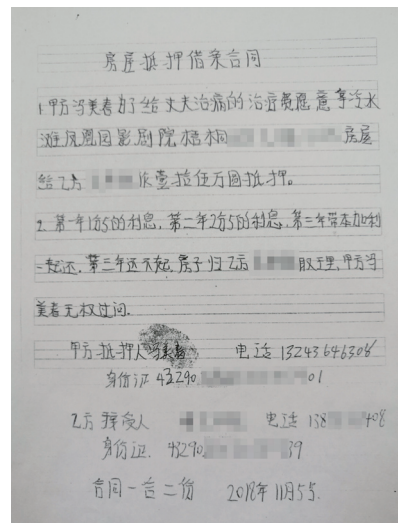 房屋抵押借条合同
1.甲方冯美春为了给丈夫治病的治疗费愿意拿冷水
滩凤凰园影剧院梧桐 房屋
给乙方 依壹拾伍万圆抵押。
2.第一年1分5的利息,第二年2分5的利息,第三年带本加利
一起还,第三年还不起,房子归乙方 取理,甲方冯
美春无权过问.
甲方抵押人 电话 13243646308
身份证 43290 01
乙方 接受人 电话 138 408
身份证. 43290 39
合同一言二份 2018年11月5号.